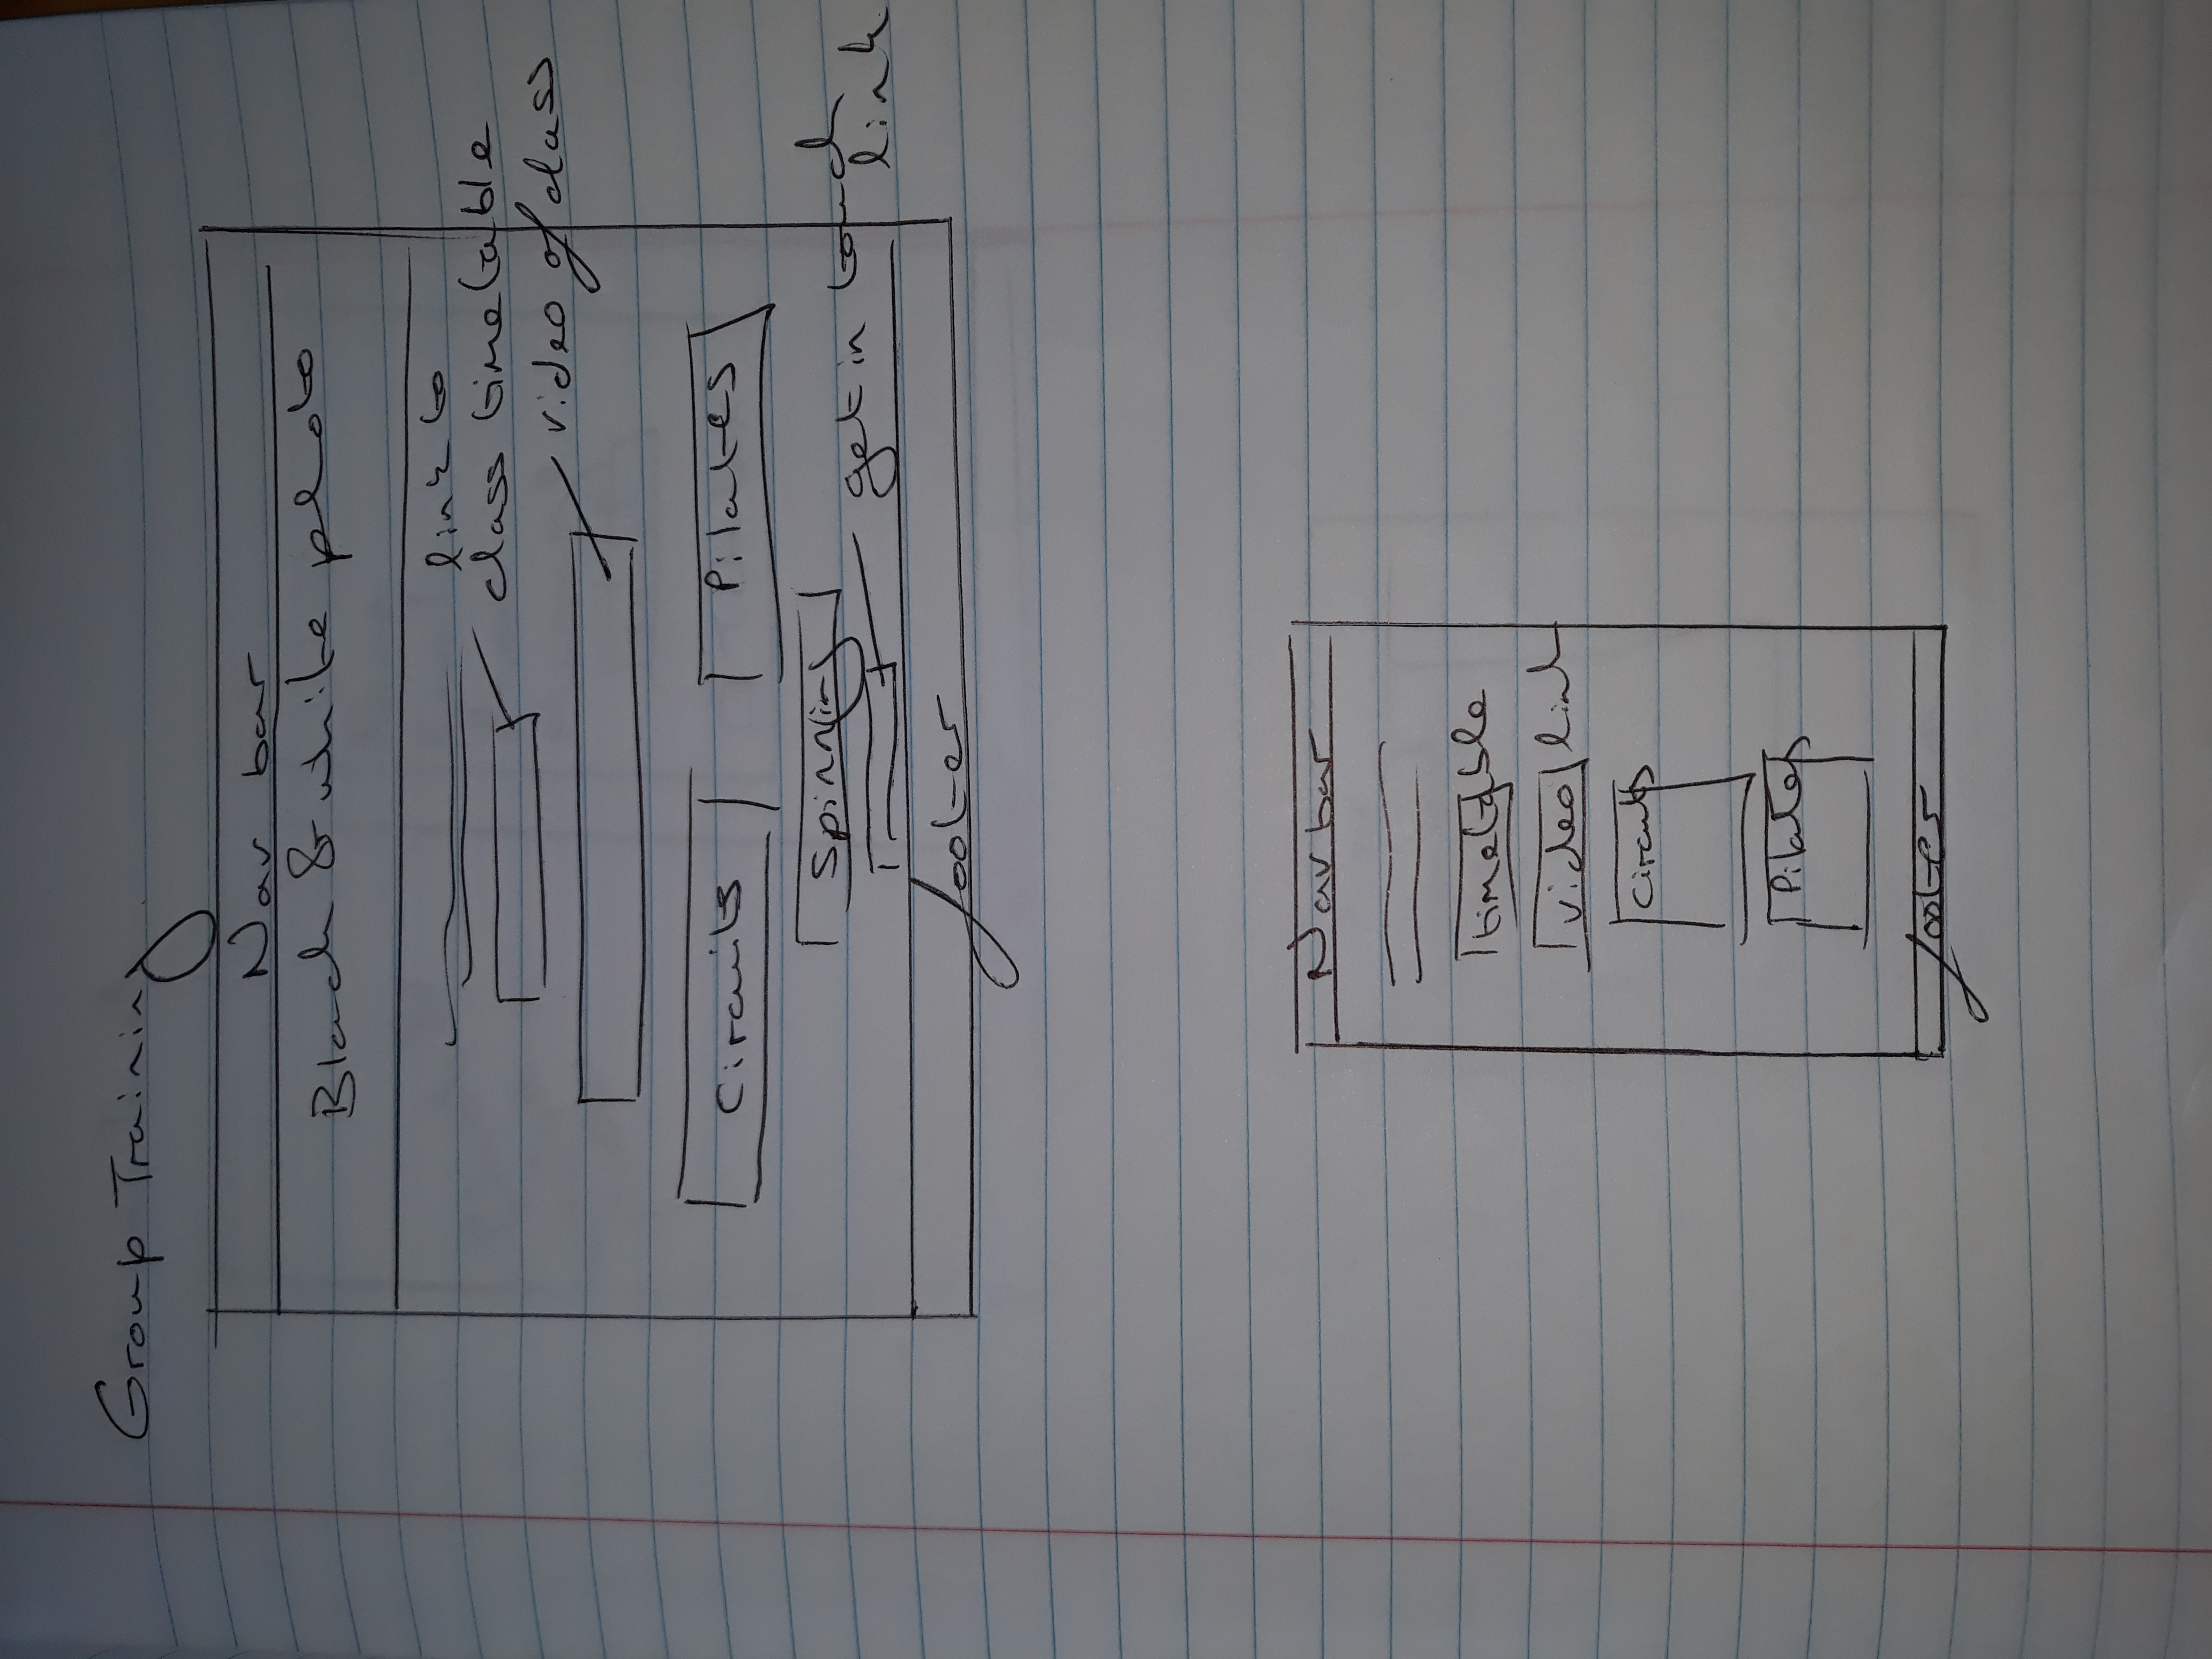 Group Training
Nav bar
Black & white photo
link to
class timetable
video of class
Circuits
Pilates
Spinning
get in touch
link
footer
Navbar
timetable
video link
Circuits
Pilates
footer